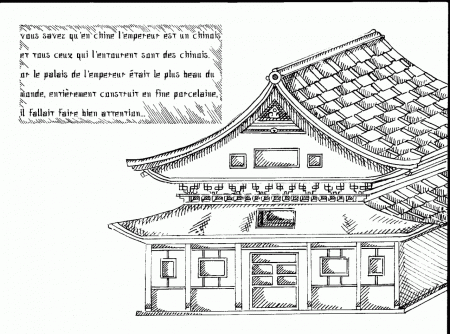 vous savez qu'en chine l'empereur est un chinois
et tous ceux qui l'entourent sont des chinois.
or le palais de l'empereur était le plus beau du
monde, entièrement construit en fine porcelaine,
il fallait faire bien attention...